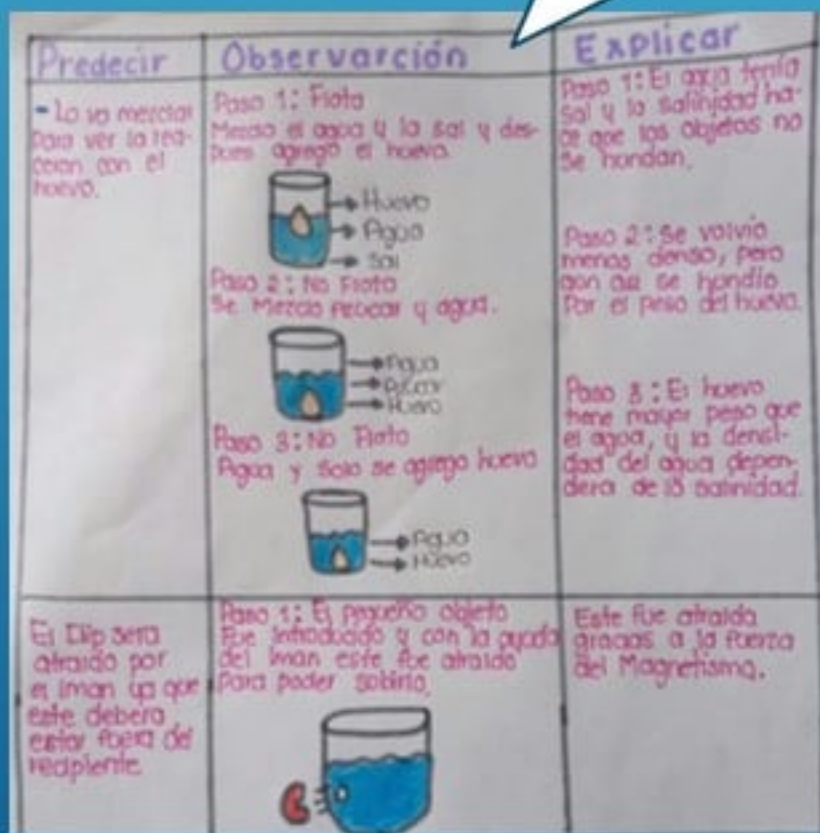 Predecir
Observarción
Explicar
- Lo va mezclar
para ver la rea-
ccion con el
huevo.
Paso 1: Flota
Mezclo el agua y la sal y des-
pues agrego el huevo.
Huevo
Agua
Sal
Paso 2: No Flota
Se Mezclo Azucar y agua.
Agua
Azucar
Huevo
Paso 3: No Floto
Agua y solo se agrego huevo
Agua
Huevo
Paso 1: El agua tenía
sal y la salinidad ha-
ce que los objetos no
se hundan.
Paso 2: Se volvió
menos denso, pero
aun así se hundio
Por el peso del huevo.
Paso 3: El huevo
tiene mayor peso que
el agua, y la densi-
dad del agua depen-
dera de la salinidad.
El Clip sera
atraido por
el iman ya que
este debera
estar fuera del
recipiente
Paso 1: El pequeño objeto
Fue introducido y con la ayuda
del iman este fue atraido
Para poder subirlo.
Este fue atraida
gracias a la fuerza
del Magnetismo.